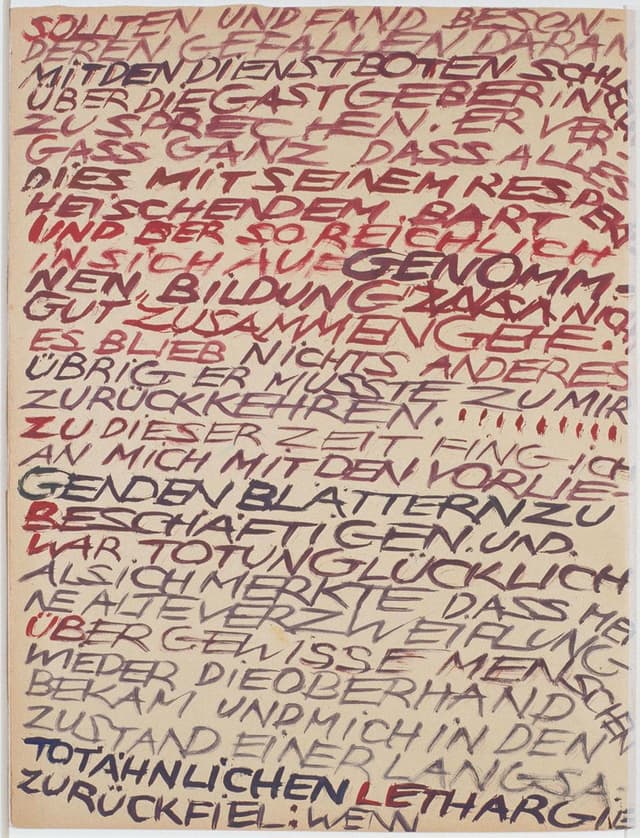 SOLLTEN UND FAND BESON-
DEREN GEFALLEN DARAN
MIT DEN DIENSTBOTEN SCHLECHT
ÜBER DIE GASTGEBER IN
ZU SPRECHEN. ER VER-
GASS GANZ DASS ALLES
DIES MIT SEINEM RESPEKT
HEISCHENDEM BART
UND DER SO REICHLICH
IN SICH AUF GENOMM-
NEN BILDUNG NICHT
GUT ZUSAMMENGEHE.
ES BLIEB NICHTS ANDERES
ÜBRIG ER MUSSTE ZU MIR
ZURÜCKKEHREN.
ZU DIESER ZEIT FING ICH
AN MICH MIT DEN VORLIE-
GENDEN BLÄTTERN ZU
BESCHÄFTIGEN. UND.
WAR TOTUNGLÜCKLICH
ALS ICH MERKTE DASS MEI
NE ALTE VERZWEIFLUNG
ÜBER GEWISSE MENSCHEN
WIEDER DIE OBERHAND
BEKAM UND MICH IN DEN
ZUSTAND EINER LANGSA.
TOTÄHNLICHEN LETHARGIE
ZURÜCKFIEL: WENN